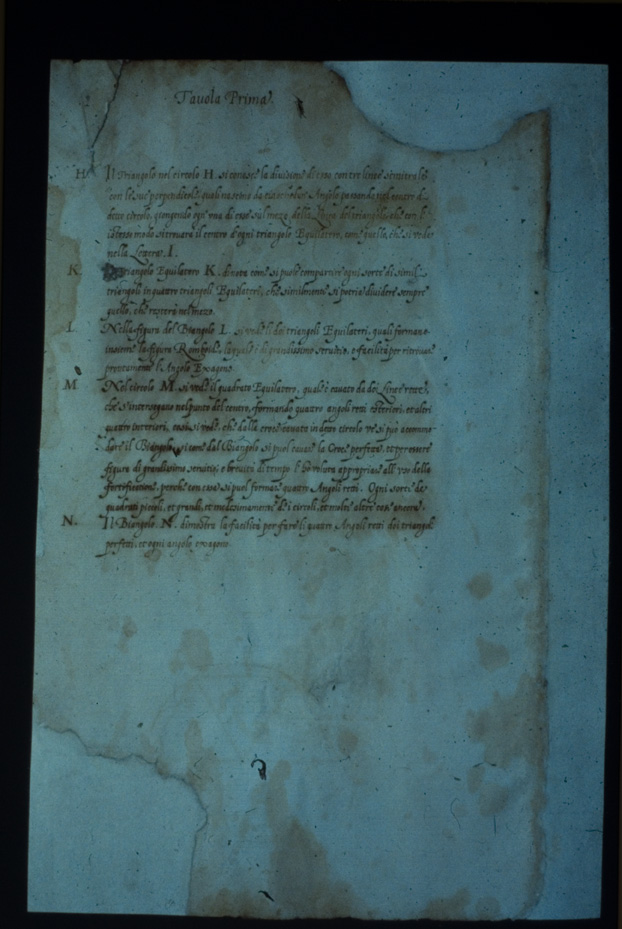 Tauola Prima
H Il Triangolo nel circolo H. si conosce la diuisione di esso con tre linee
con le sue perpendicoli, quali nascono da ciascheduno Angolo passando nel centro d
detto circolo, ogn' una di esse sul mezo della Linea del triangolo, che con l'
istesso modo si trouara il centro d'ogni triangolo Equilatero, come quello, che si vede
nella Lettera I.
K. triangolo Equilatero K. dinota come si puole compartire ogni sorte di simili
triangoli in quattro triangoli Equilateri, che similmente si potria diuidere sempre
quello, che restera nel mezo.
L Nella figura del Biangolo L. si vede li doi triangoli Equilateri, quali formano
insieme la figura Romboide, la quale è di grandissimo seruitio, e facilità per ritrouar
prontamente l'Angolo Exagono.
M Nel circolo M. si vede il quadrato Equilatero, qual è cauato da doi Linee rette,
che s'intersegano nel punto del centro, formando quattro angoli retti esteriori, et altri
quattro interiori, cosi si vede che dalla croce cauata in detto circolo ve si può accomo-
dare il Biangolo, si come dal Biangolo si puol cauar la Croce perfetta, et per essere
figura di grandissimo seruitio, e breuità di tempo l'ho voluta appropriare all' vso della
fortificatione, perche con essa si puol formar quattro Angoli retti. Ogni sorte de
quadrati piccoli, et grandi, et medesimamente de i circoli, et molte altre cose ancora.
N. Il Biangolo. N. dimostra la facilità per fare li quatro Angoli retti dei triangoli
perfetti, et ogni angolo exagono